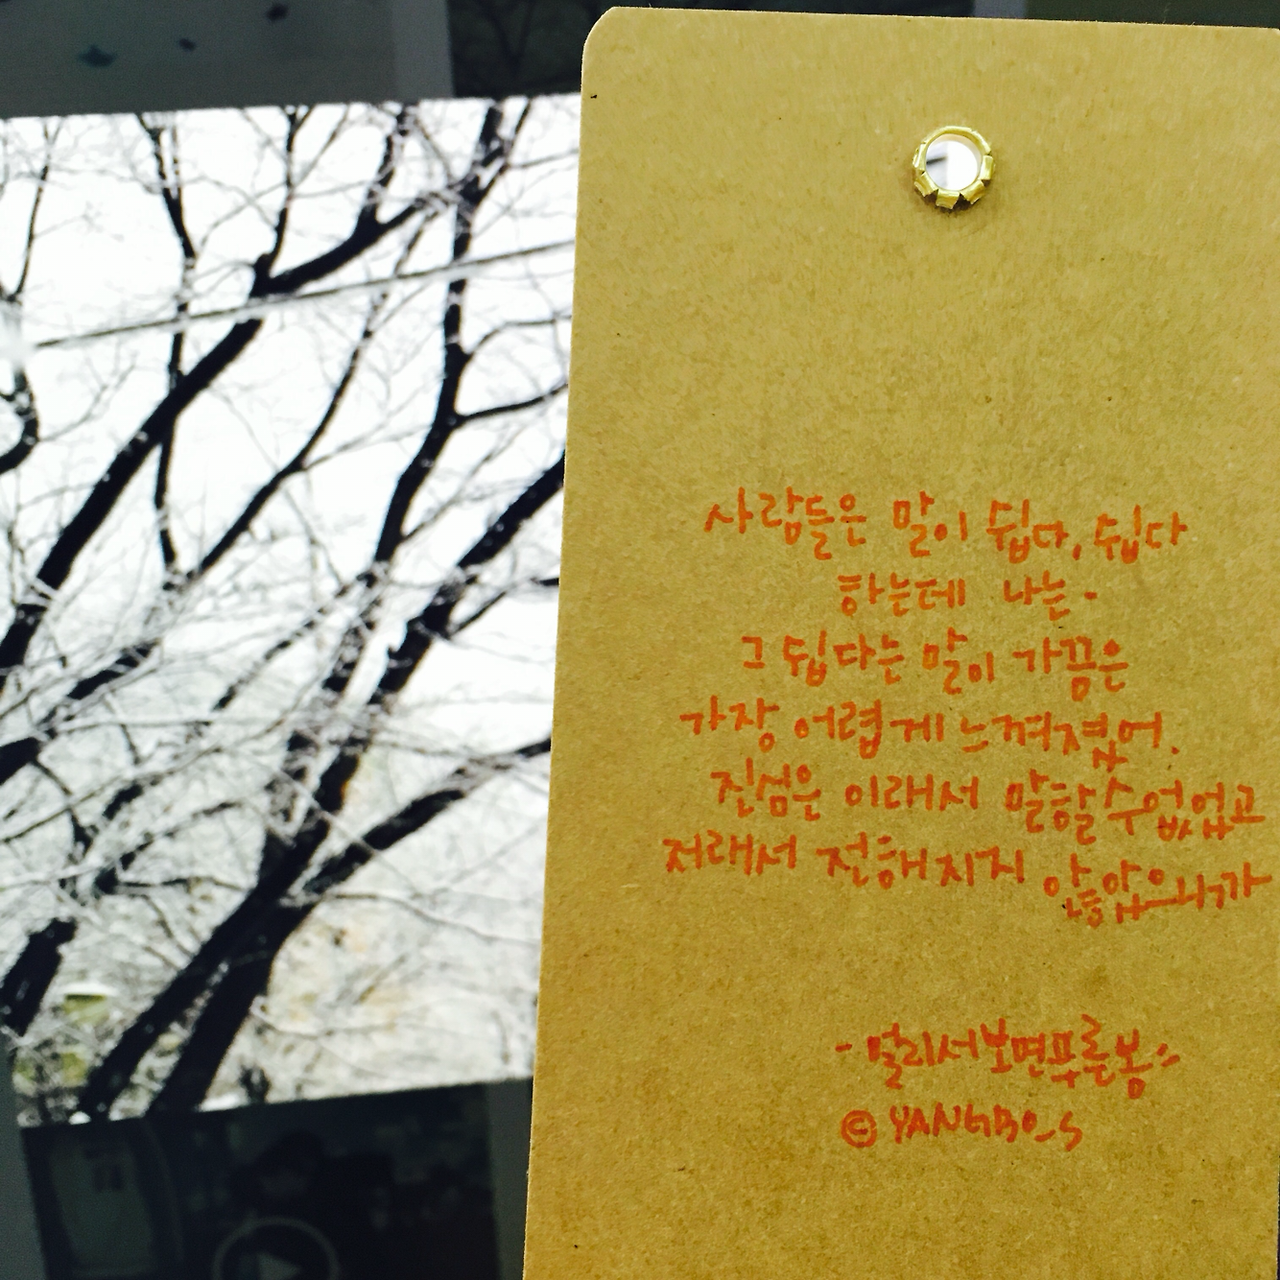 사람들은 말이 쉽다, 쉽다
하는데 나는-
그 쉽다는 말이 가끔은
가장 어렵게 느껴졌어.
진심은 이래서 말할수없었고
저래서 전해지지 않았으니까
-멀리서보면푸른봄-
© YANGBO_S